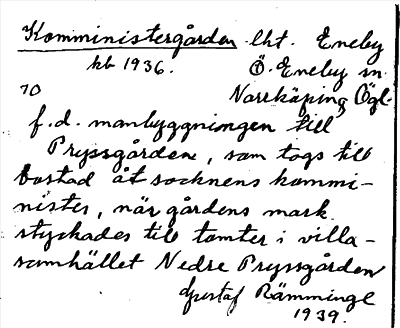 Komministergården lht. Eneby
kb 1936. Ö. Eneby sn
70 Norrköping Ögl.
f.d. manbyggningen till
Pryssgården, som togs till
bostad åt socknens kommi-
nister, när gårdens mark
styckades till tomter i villa-
samhället Nedre Pryssgården
Gustaf Rämminge
1939.